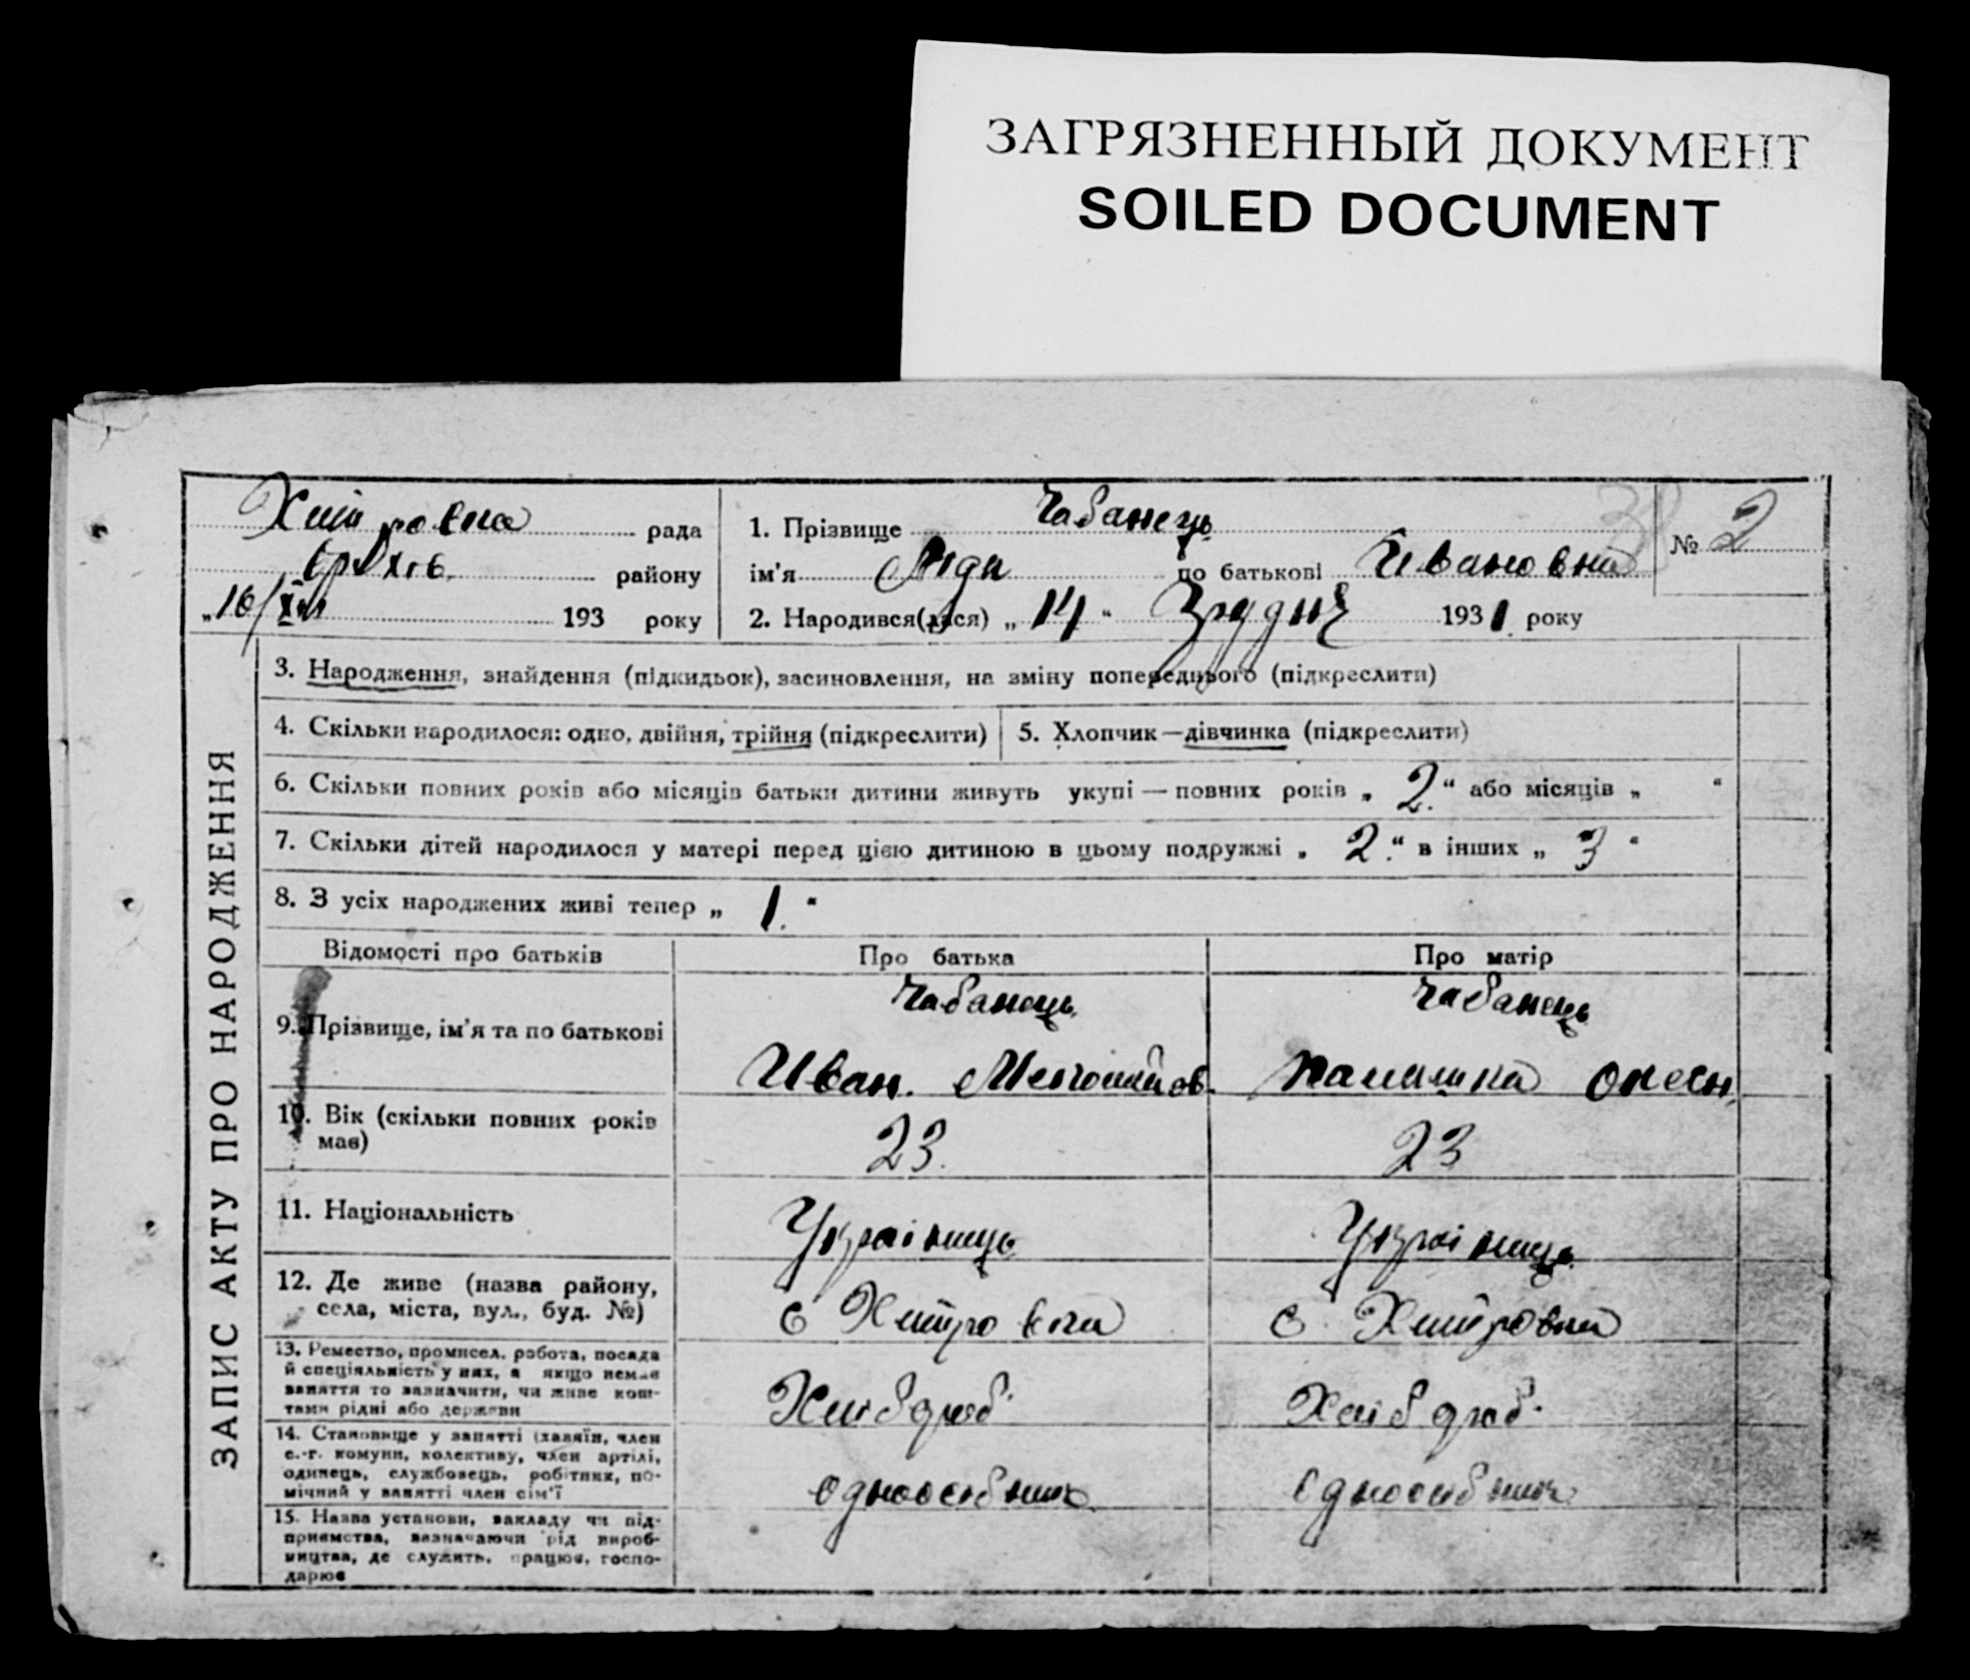 ЗАГРЯЗНЕННЫЙ ДОКУМЕНТ
SOILED DOCUMENT
рада
району
„16/XII 193 року
1. Прізвище Чабанець
ім'я Ліда по батькові Ивановна
№ 2
2. Народився(лася) „14“ Грудня 1931 року
ЗАПИС АКТУ ПРО НАРОДЖЕННЯ
3. Народження, знайдення (підкидьок), засиновлення, на зміну попереднього (підкреслити)
4. Скільки народилося: одно, двійня, трійня (підкреслити)
5. Хлопчик—дівчинка (підкреслити)
6. Скільки повних років або місяців батьки дитини живуть укупі — повних років „2.“ або місяців „ “
7. Скільки дітей народилося у матері перед цією дитиною в цьому подружжі „2.“ в інших „3“
8. З усіх народжених живі тепер „1.“
Відомості про батьків
Про батька
Про матір
9. Прізвище, ім'я та по батькові
Чабанець
Иван.
Чабанець
10. Вік (скільки повних років має)
23.
23
11. Національність
Українець
Українець
12. Де живе (назва району, села, міста, вул., буд. №)
с Хитровка
с. Хитровка
13. Ремество, промисел, робота, посада й спеціяльність у них, а якщо немає заняття то зазначити, чи живе коштами рідні або держави
Хлібороб
Хлібороб.
14. Становище у занятті (хазяїн, член с.-г. комуни, колективу, член артілі, одинець, службовець, робітник, помічний у занятті член сім'ї
одноосібник
одноосібник
15. Назва установи, закладу чи підприємства, зазначаючи рід виробництва, де служить, працює, господарює